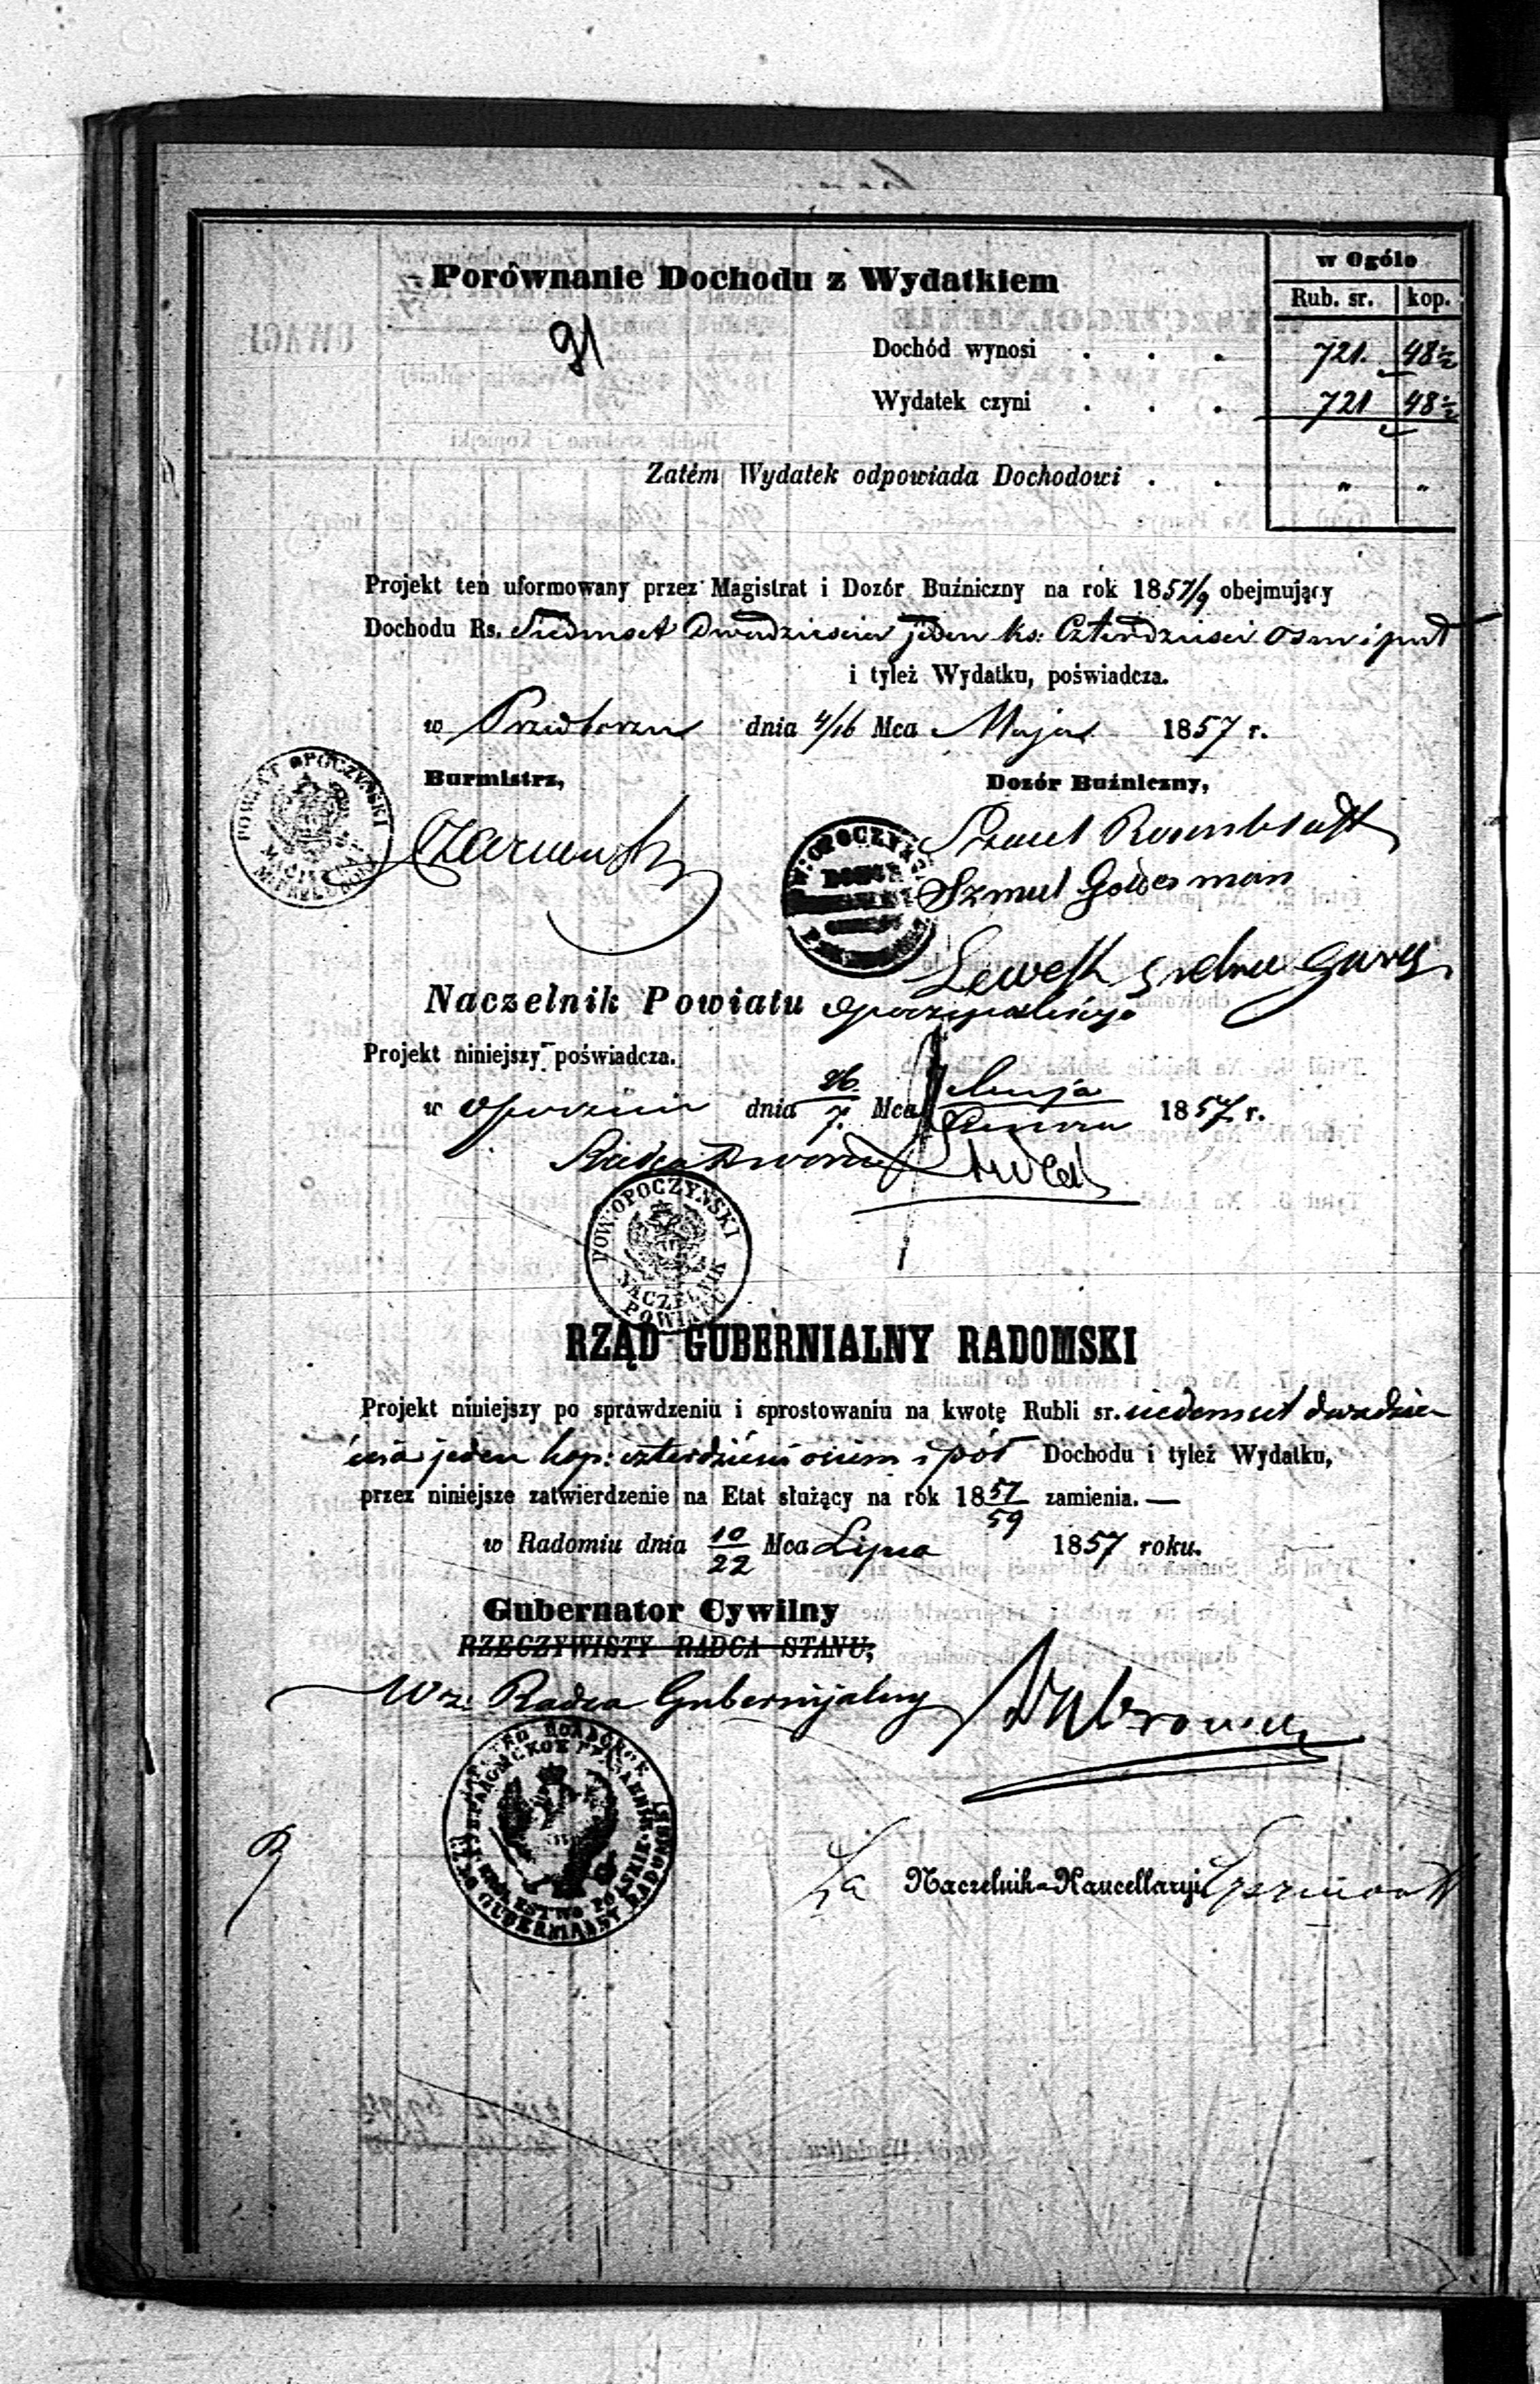 w Ogóle
Porównanie Dochodu z Wydatkiem
Rub. sr. kop.
91
Dochód wynosi . . . 721. 48½
Wydatek czyni . . . 721 48½
Zatém Wydatek odpowiada Dochodowi . . „ „
Projekt ten uformowany przez Magistrat i Dozór Buźniczny na rok 1857/9 obejmujący
Dochodu Rs. Siedmset Dwadzieścia jeden ks: Czterdzieści osm i puł
i tyleż Wydatku, poświadcza.
w Przedborzu dnia 4/16 Mca Maja 1857 r.
Burmistrz, Dozór Buźniczny,
POWIAT OPOCZYŃSKI
Szmul
Naczelnik Powiatu Opoczyńskiego
Projekt niniejszy poświadcza.
w Opocznie dnia 26/7 Mca Maja/Czerwca 1857 r.
Radca Dworu
POW. OPOCZYŃSKI
NACZELNIK
POWIATU
RZĄD GUBERNIALNY RADOMSKI
Projekt niniejszy po sprawdzeniu i sprostowaniu na kwotę Rubli sr. siedemset dwadzie-
ścia jeden kop: czterdzieści ośiem i pół Dochodu i tyleż Wydatku,
przez niniejsze zatwierdzenie na Etat służący na rok 1857/59 zamienia. —
w Radomiu dnia 10/22 Mca Lipca 1857 roku.
Gubernator Cywilny
RZECZYWISTY RADCA STANU,
Wz. Radca Gubernijalny
KRÓLESTWO POLSKIE
RZĄD GUBERNIALNY RADOMSKI
Za Naczelnik Kancellaryi